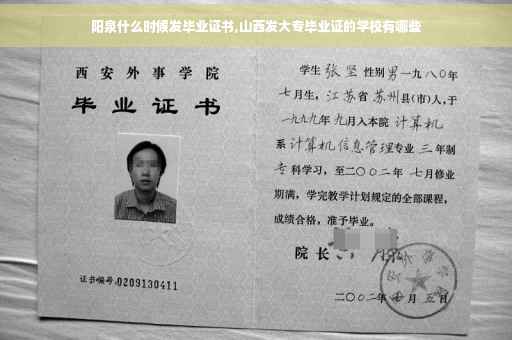 阳泉什么时候发毕业证书,山西发大专毕业证的学校有哪些
西安外事学院
毕业证书
证书编号:0209130411
学生 张坚 性别 男 一九八〇年
七月生, 江苏省 苏州县(市)人,于
一九九九年 九月入本院 计算机
系 计算机信息管理 专业 三 年制
专科学习,至二〇〇二年 七月修业
期满,学完教学计划规定的全部课程,
成绩合格,准予毕业。
院长
二〇〇二年 月 五 日